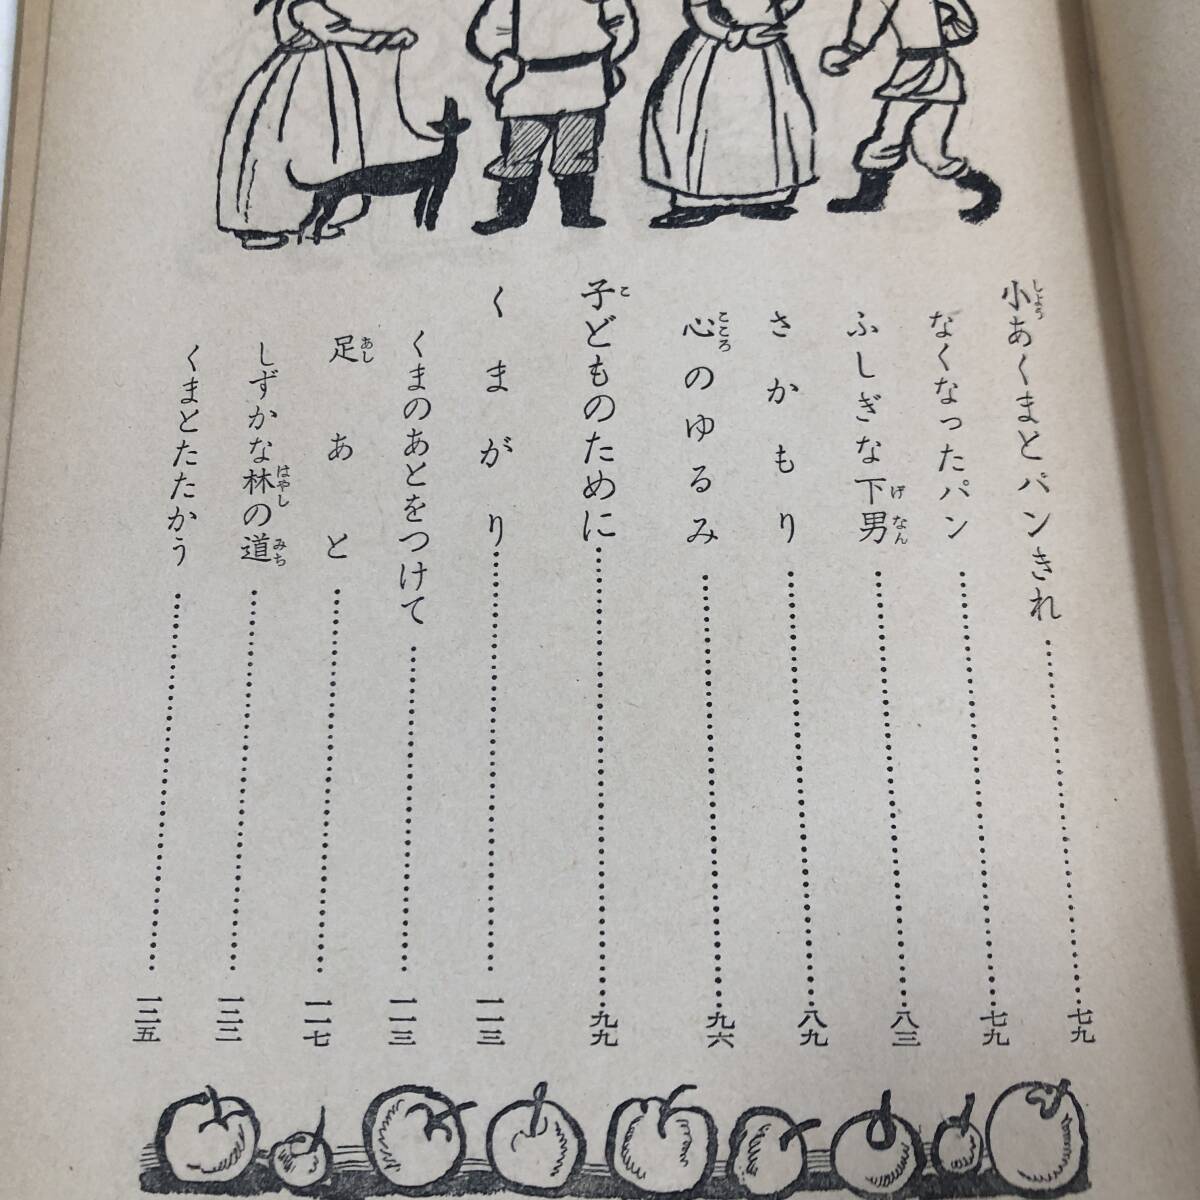 小あくまとパンきれ……七九
なくなったパン……七九
ふしぎな下男……八三
さかもり……八九
心のゆるみ……九六
子どものために……九九
くまがり……一一三
くまのあとをつけて……一一三
足あと……一一七
しずかな林の道……一二二
くまとたたかう……一二五